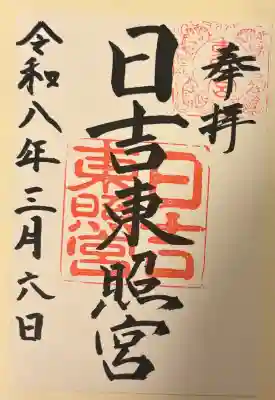 奉拝
日吉東照宮
日吉東照宮
令和八年三月六日